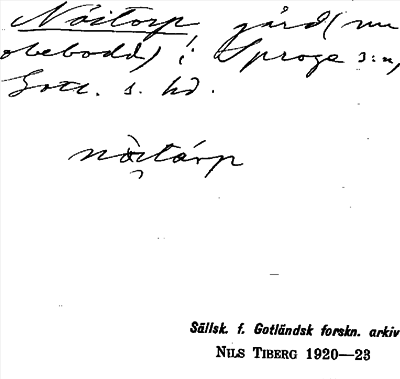 Nöitorp gård (nu
obebodd) i Sproge s:n,
Gotl. s. hd.
nòitárp
Sällsk. f. Gotländsk forskn. arkiv
NILS TIBERG 1920—23